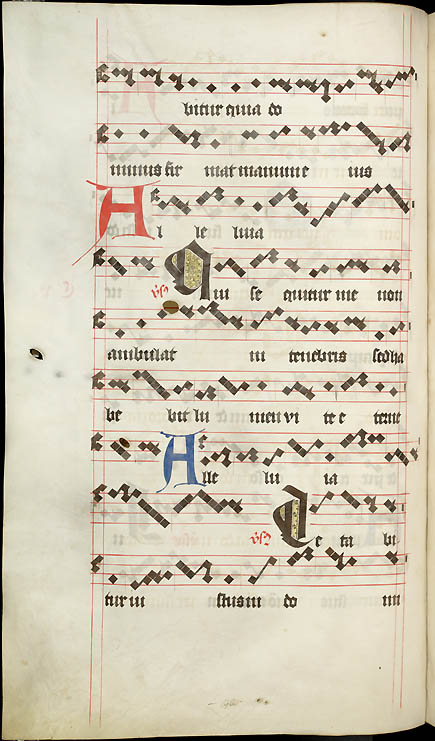 bitur quia do
minus fir mat manum e ius
Al le luia
℣ Qui se quitur me non
ambulat in tenebris sed ha
be bit lu men vi te e terne
Alle lu ia
℣ Le ta bi
tur iu stus in do mi